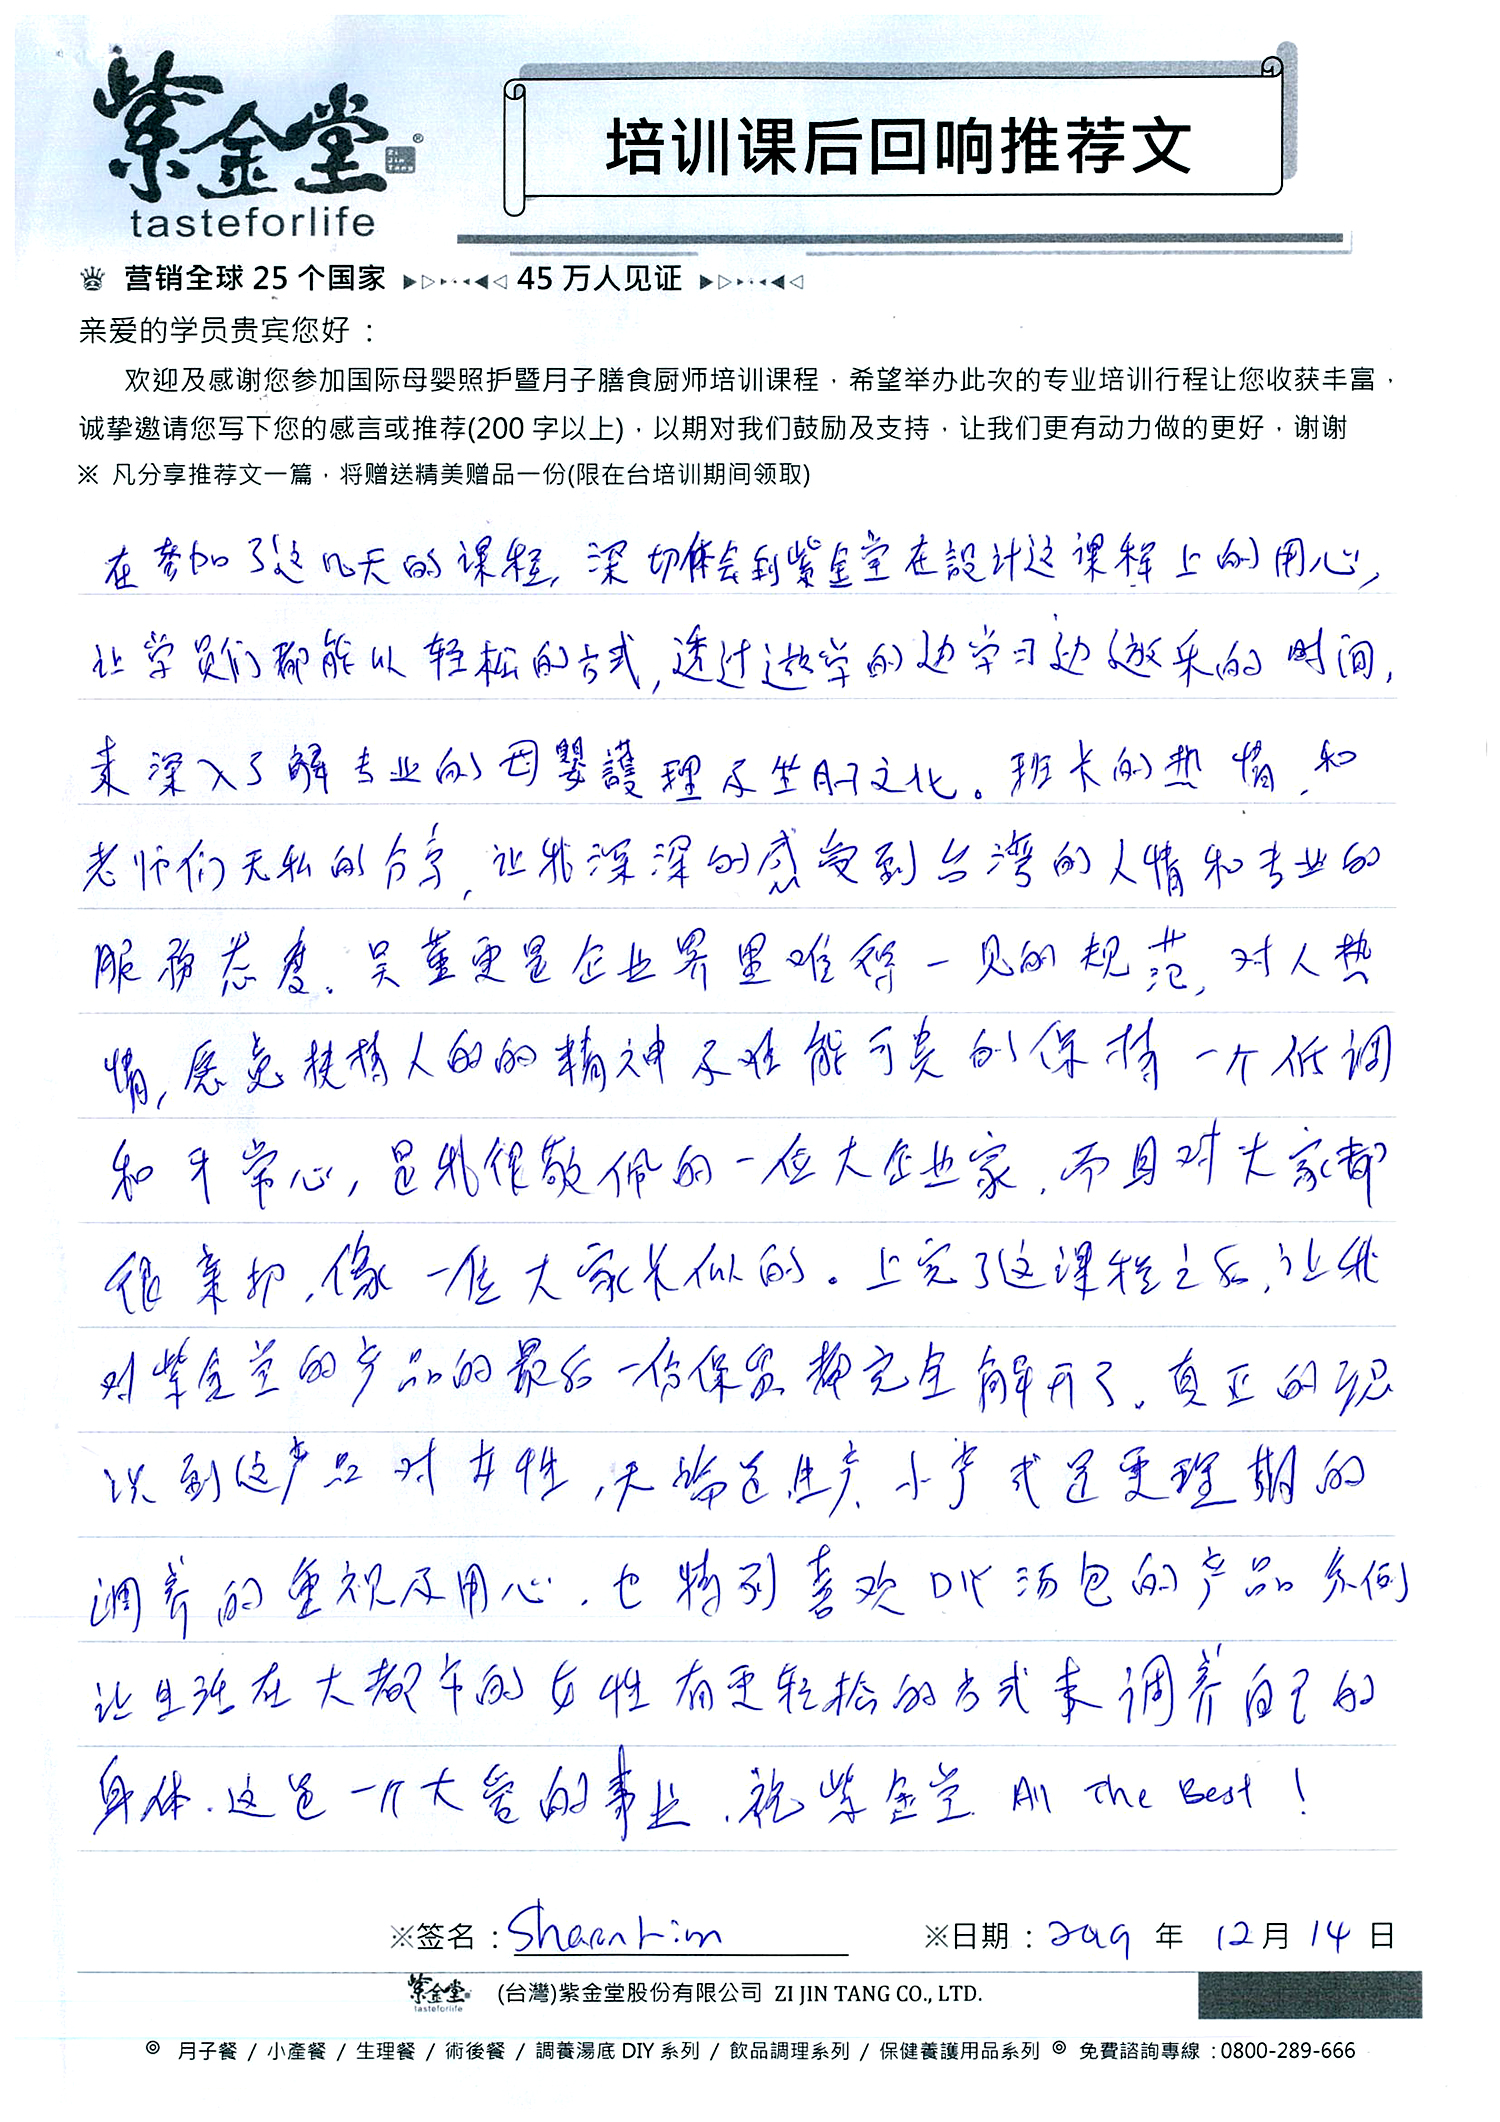 紫金堂®
tasteforlife
培训课后回响推荐文
营销全球 25 个国家 45 万人见证
亲爱的学员贵宾您好：
欢迎及感谢您参加国际母婴照护暨月子膳食厨师培训课程，希望举办此次的专业培训行程让您收获丰富，
诚挚邀请您写下您的感言或推荐(200 字以上)，以期对我们鼓励及支持，让我们更有动力做的更好，谢谢
※ 凡分享推荐文一篇，将赠送精美赠品一份(限在台培训期间领取)
在参加了这几天的课程，深切体会到紫金堂在設计这课程上的用心，
让学员们都能以轻松的方式，透过遊学的边学习边遊乐的时间，
来深入了解专业的母嬰護理及坐月子文化。班长的热情，和
老师们无私的分享，让我深深的感受到台湾的人情和专业的
服務态度。吴董更是企业界里难得一见的规范，对人热
情，愿意扶持人的的精神及难能可贵的保持一个低调
和平常心，是我很敬佩的一位大企业家，而且对大家都
很亲切，像一位大家长似的。上完了这课程之后，让我
对紫金堂的产品的最后一份保留都完全解开了。真正的认
识到这产品对女性，无论是生产、小产或是生理期的
调养的重视及用心，也特别喜欢DIY汤包的产品系例
让生活在大都市的女性有更轻松的方式来调养自己的
身体，这是一个大爱的事业，祝紫金堂 All The Best！
※签名：Sharn Lim ※日期：2019 年 12 月 14 日
紫金堂 tasteforlife (台灣)紫金堂股份有限公司 ZI JIN TANG CO., LTD.
◎ 月子餐 / 小產餐 / 生理餐 / 術後餐 / 調養湯底 DIY 系列 / 飲品調理系列 / 保健養護用品系列 ◎ 免費諮詢專線：0800-289-666